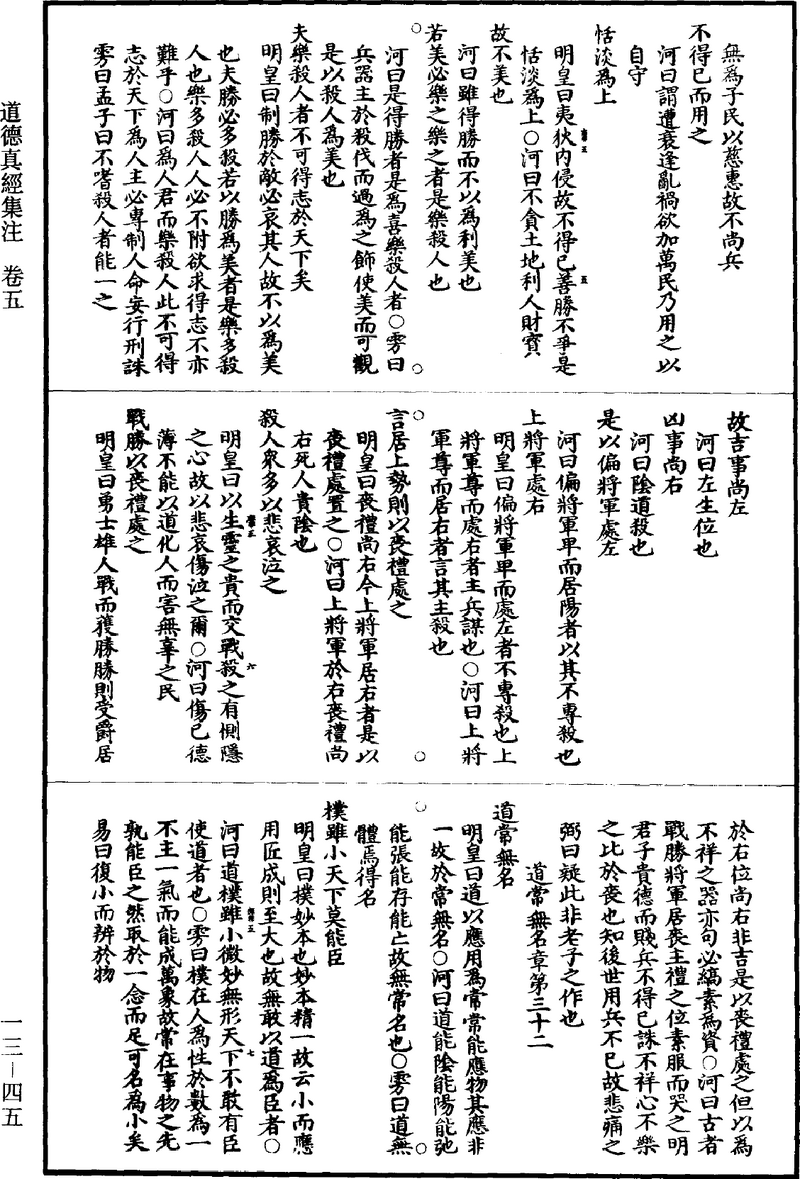 無爲子民以慈惠故不尚兵
不得已而用之
河曰謂遭衰逢亂禍欲加萬民乃用之以
自守
恬淡爲上
明皇曰夷狄內侵故不得已善勝不爭是
恬淡爲上○河曰不貪土地利人財寳
故不美也
河曰雖得勝而不以爲利美也
若美必樂之樂之者是樂殺人也
河曰是得勝者是爲喜樂殺人者○雱曰
兵器主於殺伐而過爲之飾使美而可觀
是以殺人爲美也
夫樂殺人者不可得志於天下矣
明皇曰制勝於敵必哀其人故不以爲美
也夫勝必多殺若以勝爲美者是樂多殺
人也樂多殺人人必不附欲求得志不亦
難乎○河曰爲人君而樂殺人此不可得
志於天下爲人主必專制人命妄行刑誅
雱曰孟子曰不嗜殺人者能一之
故吉事尚左
河曰左生位也
凶事尚右
河曰陰道殺也
是以偏將軍處左
河曰偏將軍卑而居陽者以其不專殺也
上將軍處右
明皇曰偏將軍卑而處左者不專殺也上
將軍尊而處右者主兵謀也○河曰上將
軍尊而居右者言其主殺也
言居上勢則以喪禮處之
明皇曰喪禮尚右今上將軍居右者是以
喪禮處置之○河曰上將軍於右喪禮尚
右死人貴陰也
殺人眾多以悲哀泣之
明皇曰以生靈之貴而交戰殺之有惻隱
之心故以悲哀傷泣之爾○河曰傷己德
薄不能以道化人而害無辜之民
戰勝以喪禮處之
明皇曰勇士雄人戰而獲勝勝則受爵居
於右位尚右非吉是以喪禮處之但以爲
不祥之器亦句必縞素爲資○河曰古者
戰勝將軍居喪主禮之位素服而哭之明
君子貴德而賤兵不得已誅不祥心不樂
之比於喪也知後世用兵不已故悲痛之
弼曰疑此非老子之作也
道常無名章第三十二
道常無名
明皇曰道以應用爲常常能應物其應非
一故於常無名○河曰道能陰能陽能弛
能張能存能亡故無常名也○雱曰道無
體焉得名
樸雖小天下莫能臣
明皇曰樸妙本也妙本精一故云小而應
用匠成則至大也故無敢以道爲臣者○
河曰道樸雖小微妙無形天下不敢有臣
使道者也○雱曰樸在人爲性於數爲一
不主一氣而能成萬象故常在事物之先
孰能臣之然取於一念而足可名爲小矣
易曰復小而辨於物
道德真經集注 卷五
一三－四五